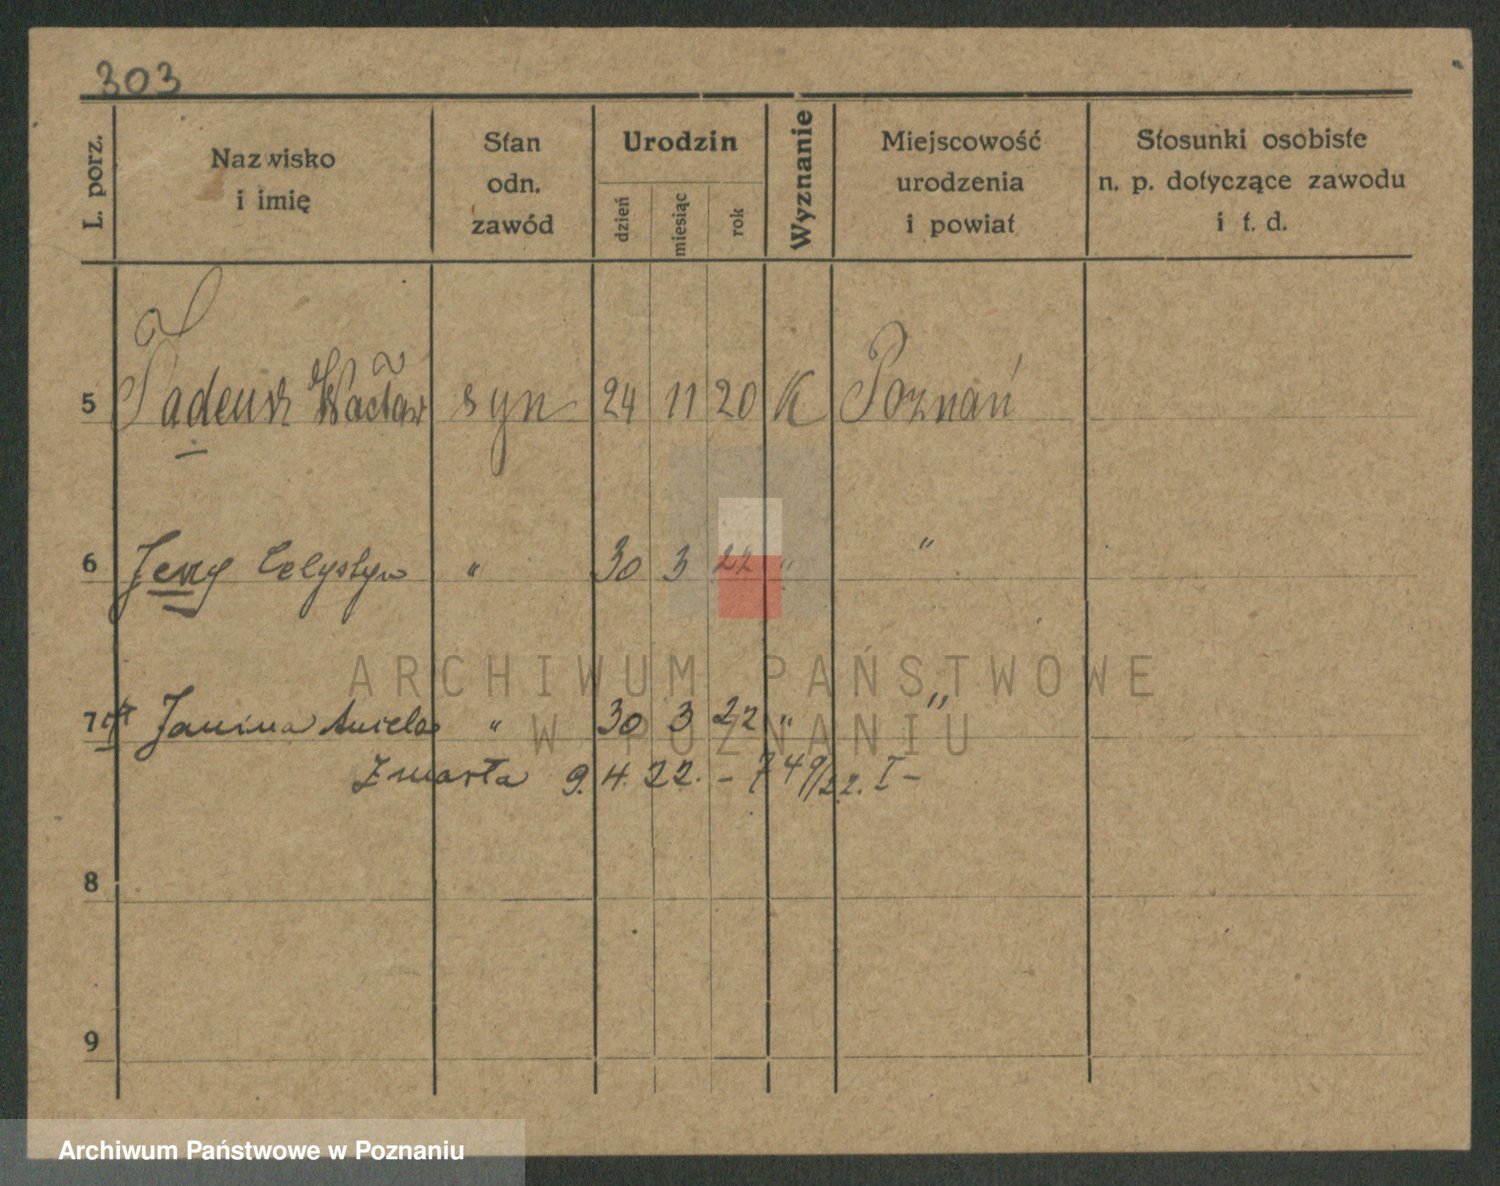 303
L. porz. Nazwisko i imię Stan odn. zawód Urodzin dzień miesiąc rok Wyznanie Miejscowość urodzenia i powiat Stosunki osobiste n. p. dotyczące zawodu i t. d.
5 Tadeusz Wacław syn 24 11 20 K Poznań
6 Jerzy Celystyn " 30 3 22 " "
7 Janina Aniela " 30 3 22 " "
Zmarła 9. 4. 22. - 749/22. I-
8
9
ARCHIWUM PAŃSTWOWE
W POZNANIU
Archiwum Państwowe w Poznaniu